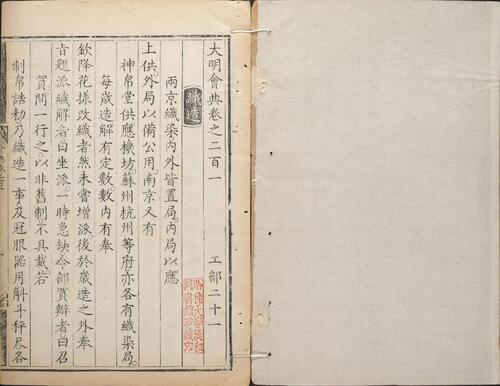 大明會典卷之二百一
工部二十一
織造
兩京織染內外皆置局內局以應
上供外局以備公用南京又有
神帛堂供應機坊蘇州杭州等府亦各有織染局
每歲造解有定數內有奉
欽降花樣改織者然未嘗增派後於歲造之外奉
旨題派織解者曰坐派一時急缺令部買辦者曰召
買間一行之以非舊制不具載若
制帛誥勑乃織造一事及冠服器用斛斗秤尺各